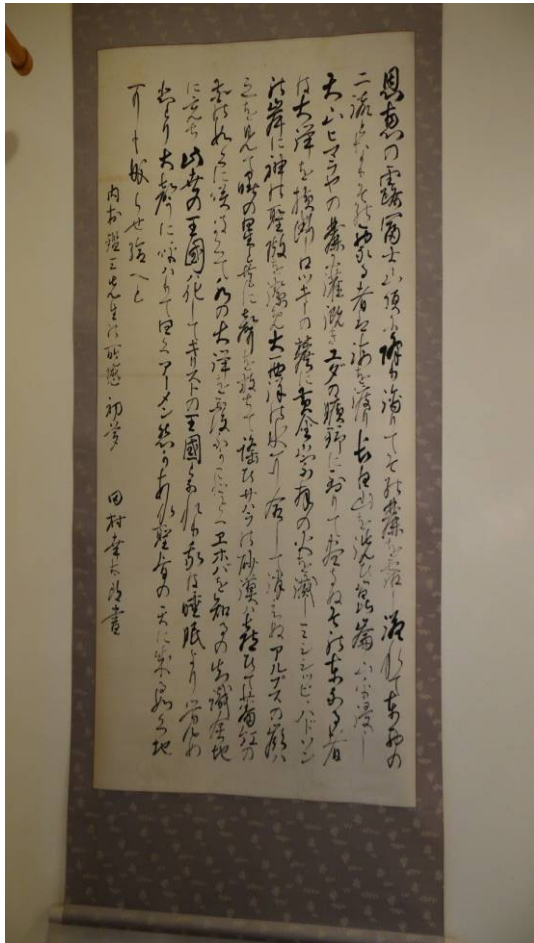 恩恵の露富士山頂に降り滴りてその麓を霑し溢れて東西の
二流となりその西なる者は海を渡り長白山を洗ひ崑崙山を浸し
天山ヒマラヤの麓に灌漑ぎユダの曠野に到りて尽きぬその東なる者
は大洋を横断しロツキーの麓に黄金崇拝の火を滅しミシシッピ・ハドソン
の岸に神の聖殿を潔め大西洋の水に合して消えぬアルプスの嶺は
之を見て曙の星と共に聲を放ちて謡ひサハラの砂漠は喜びて番紅の
花の如くに咲きかくて水の大洋を覆ふが如くエホバを知るの知識全地
に充ち此世の王國は化してキリストの王國となれり我は睡眠より覚め
独り大聲に呼はりて曰くアーメン然かあれ聖旨の天に成る如く地
にも成らせ給へと
内村鑑三先生の所感 初夢 田村幸太郎書